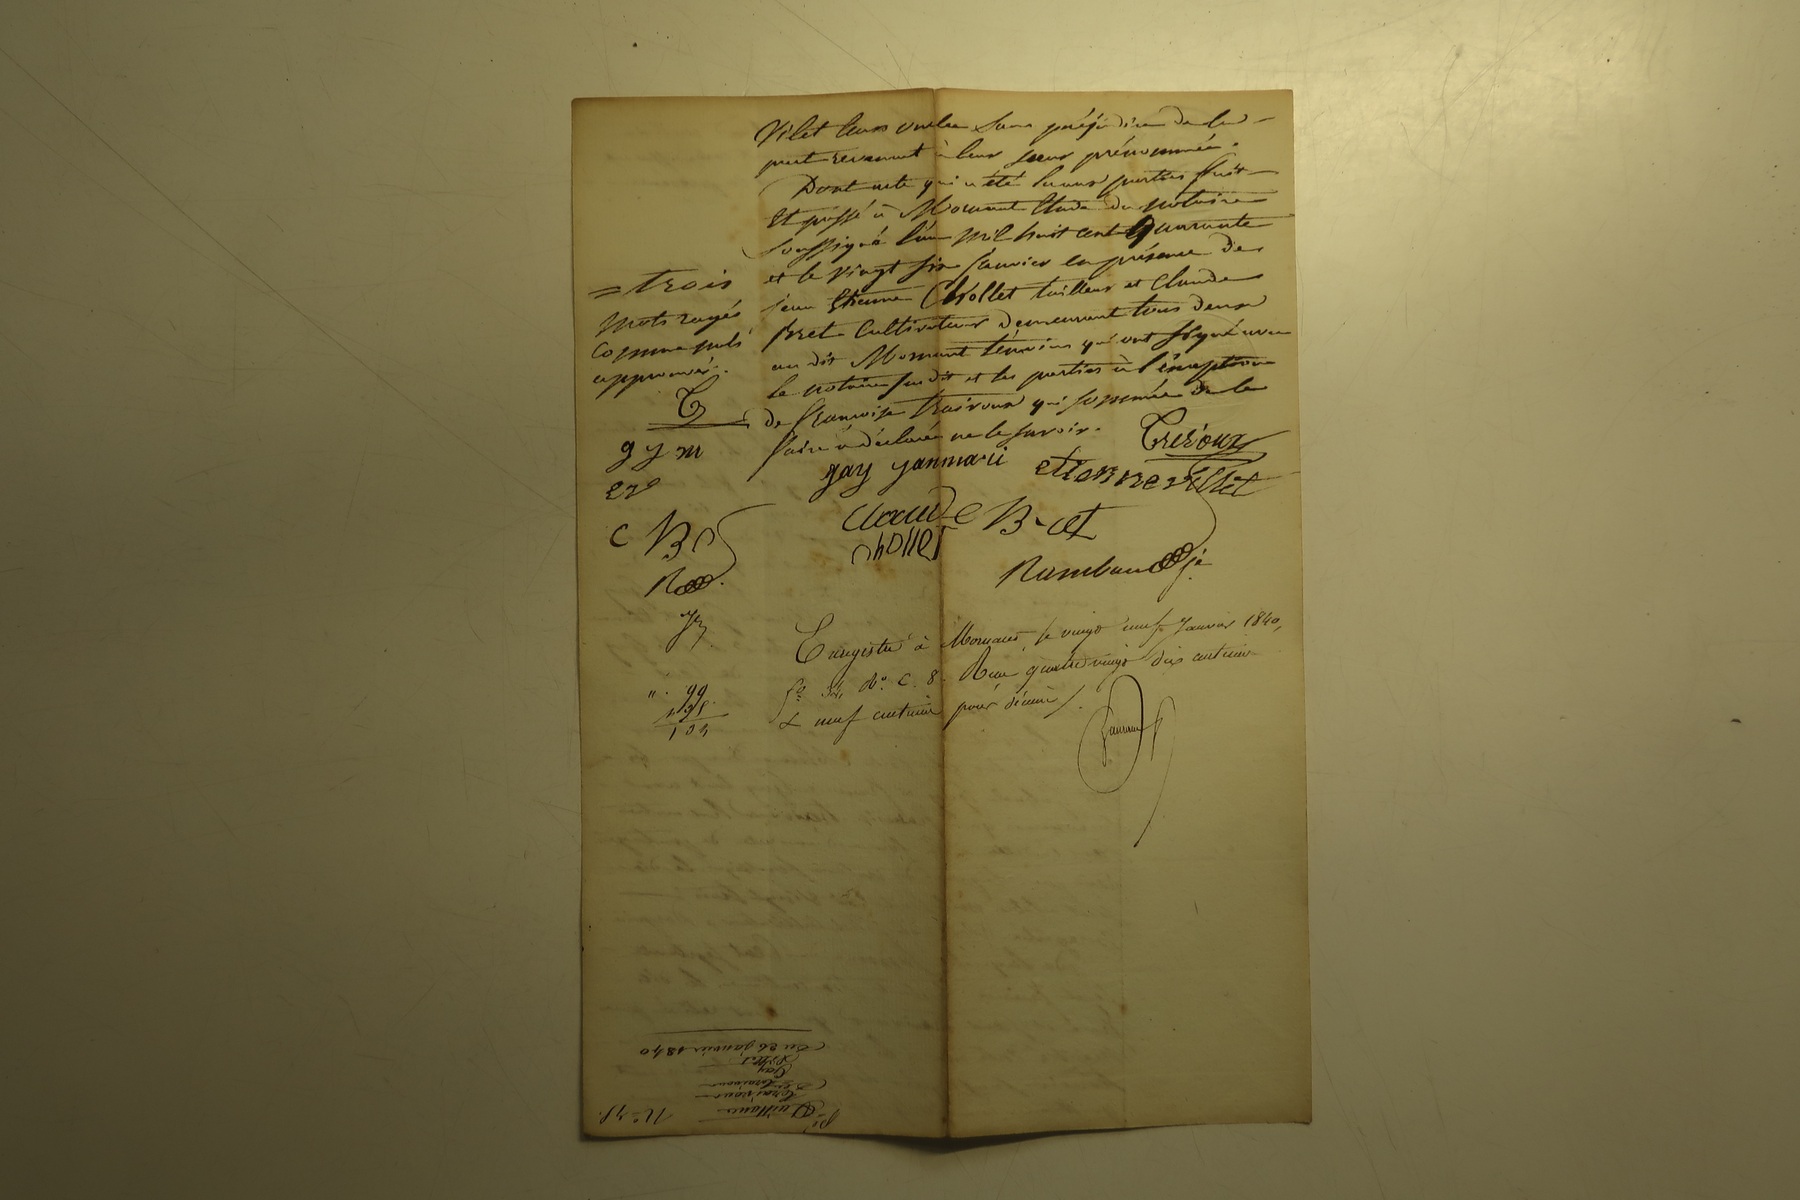 Vilet leurs oncles sans préjudice de la
part revenant à leur sœur prénommée.
Dont acte qui a été lu aux parties fait
et passé à Mornant Etude du notaire
soussigné l'an mil huit cent Quarante
et le vingt six Janvier en présence de
Jean Etienne Chollet tailleur et Claude
Bret Cultivateur demeurant tous deux
au dit Mornant témoins qui ont signé avec
le notaire susdit et les parties à l'éxception
de françoise traivoux qui sommée de le
faire a déclaré ne le savoir.
= trois
Mots rayés
comme nuls
approuvés.
T
g y m
E v
C B
R
gay yanmarii
etienne villet
Claude Bret
chollet
Rambaud
Enregistré à Mornant, le vingt neuf Janvier 1840,
f° 34, R° C. 8. Reçu quatre vingt dix centimes
& neuf centimes pour décime.
N° 48.
Quittance
traivoux
Gay
Villet
Du 26 janvier 1840